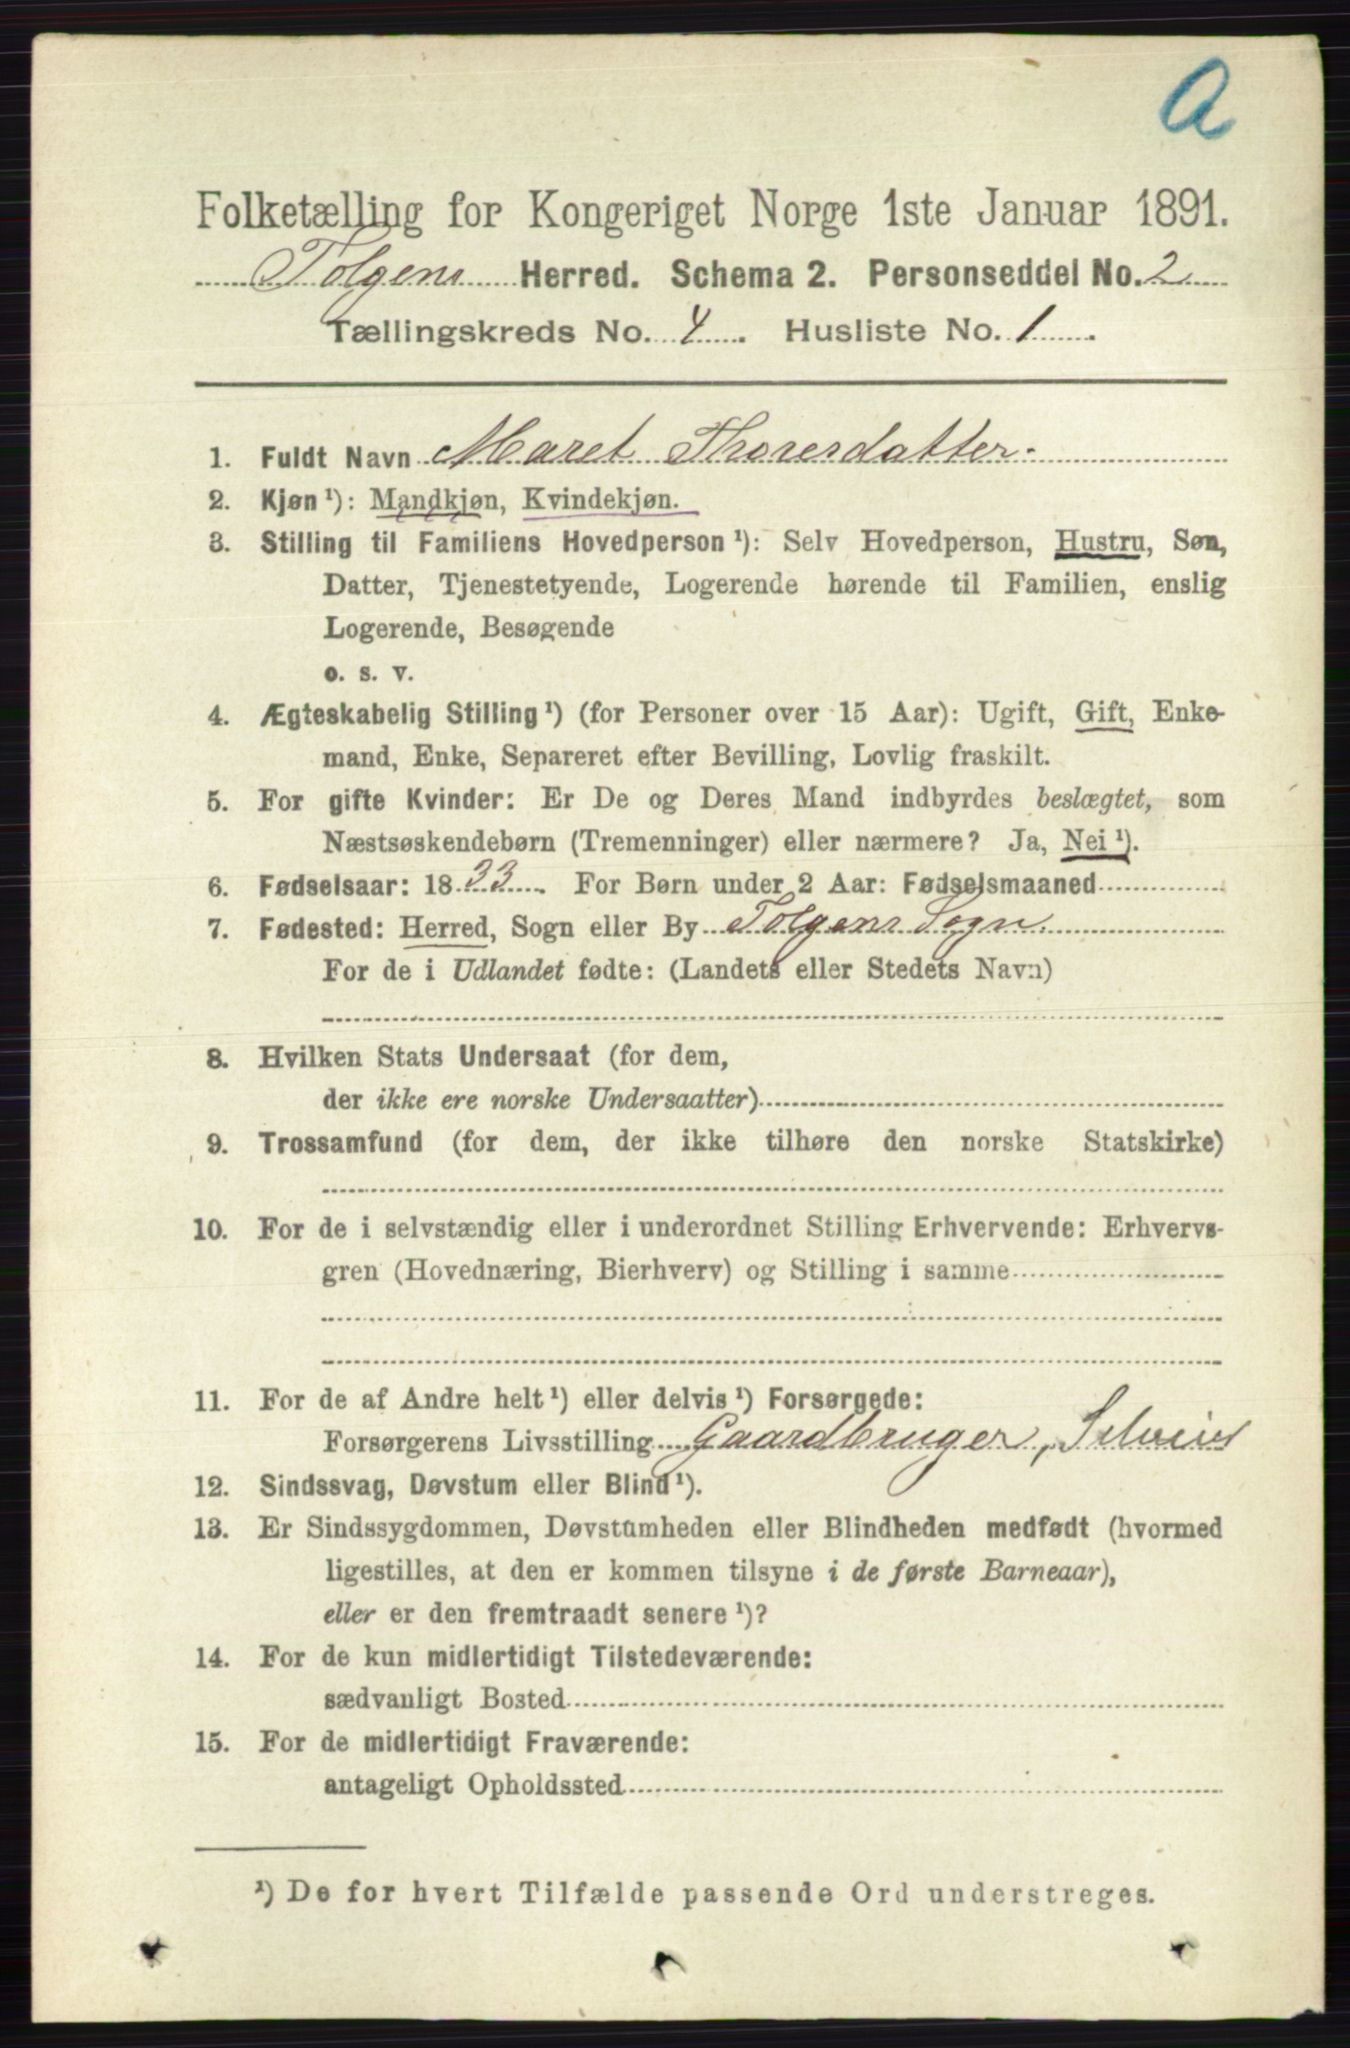 a
Folketælling for Kongeriget Norge 1ste Januar 1891.
Tolgens Herred. Schema 2. Personseddel No. 2
Tællingskreds No. 4. Husliste No. 1.
1. Fuldt Navn Maret Thoresdatter.
2. Kjøn ¹): Mandkjøn, Kvindekjøn.
3. Stilling til Familiens Hovedperson ¹): Selv Hovedperson, Hustru, Søn,
Datter, Tjenestetyende, Logerende hørende til Familien, enslig
Logerende, Besøgende
o. s. v.
4. Ægteskabelig Stilling ¹) (for Personer over 15 Aar): Ugift, Gift, Enke-
mand, Enke, Separeret efter Bevilling, Lovlig fraskilt.
5. For gifte Kvinder: Er De og Deres Mand indbyrdes beslægtet, som
Næstsøskendebørn (Tremenninger) eller nærmere? Ja, Nei ¹).
6. Fødselsaar: 1833. For Børn under 2 Aar: Fødselsmaaned
7. Fødested: Herred, Sogn eller By Tolgens Sogn.
For de i Udlandet fødte: (Landets eller Stedets Navn)
8. Hvilken Stats Undersaat (for dem,
der ikke ere norske Undersaatter)
9. Trossamfund (for dem, der ikke tilhøre den norske Statskirke)
10. For de i selvstændig eller i underordnet Stilling Erhvervende: Erhvervs-
gren (Hovednæring, Bierhverv) og Stilling i samme
11. For de af Andre helt ¹) eller delvis ¹) Forsørgede:
Forsørgerens Livsstilling Gaardbruger, Selveier
12. Sindssvag, Døvstum eller Blind ¹).
13. Er Sindssygdommen, Døvstumheden eller Blindheden medfødt (hvormed
ligestilles, at den er kommen tilsyne i de første Barneaar),
eller er den fremtraadt senere ¹)?
14. For de kun midlertidigt Tilstedeværende:
sædvanligt Bosted
15. For de midlertidigt Fraværende:
antageligt Opholdssted
¹) De for hvert Tilfælde passende Ord understreges.